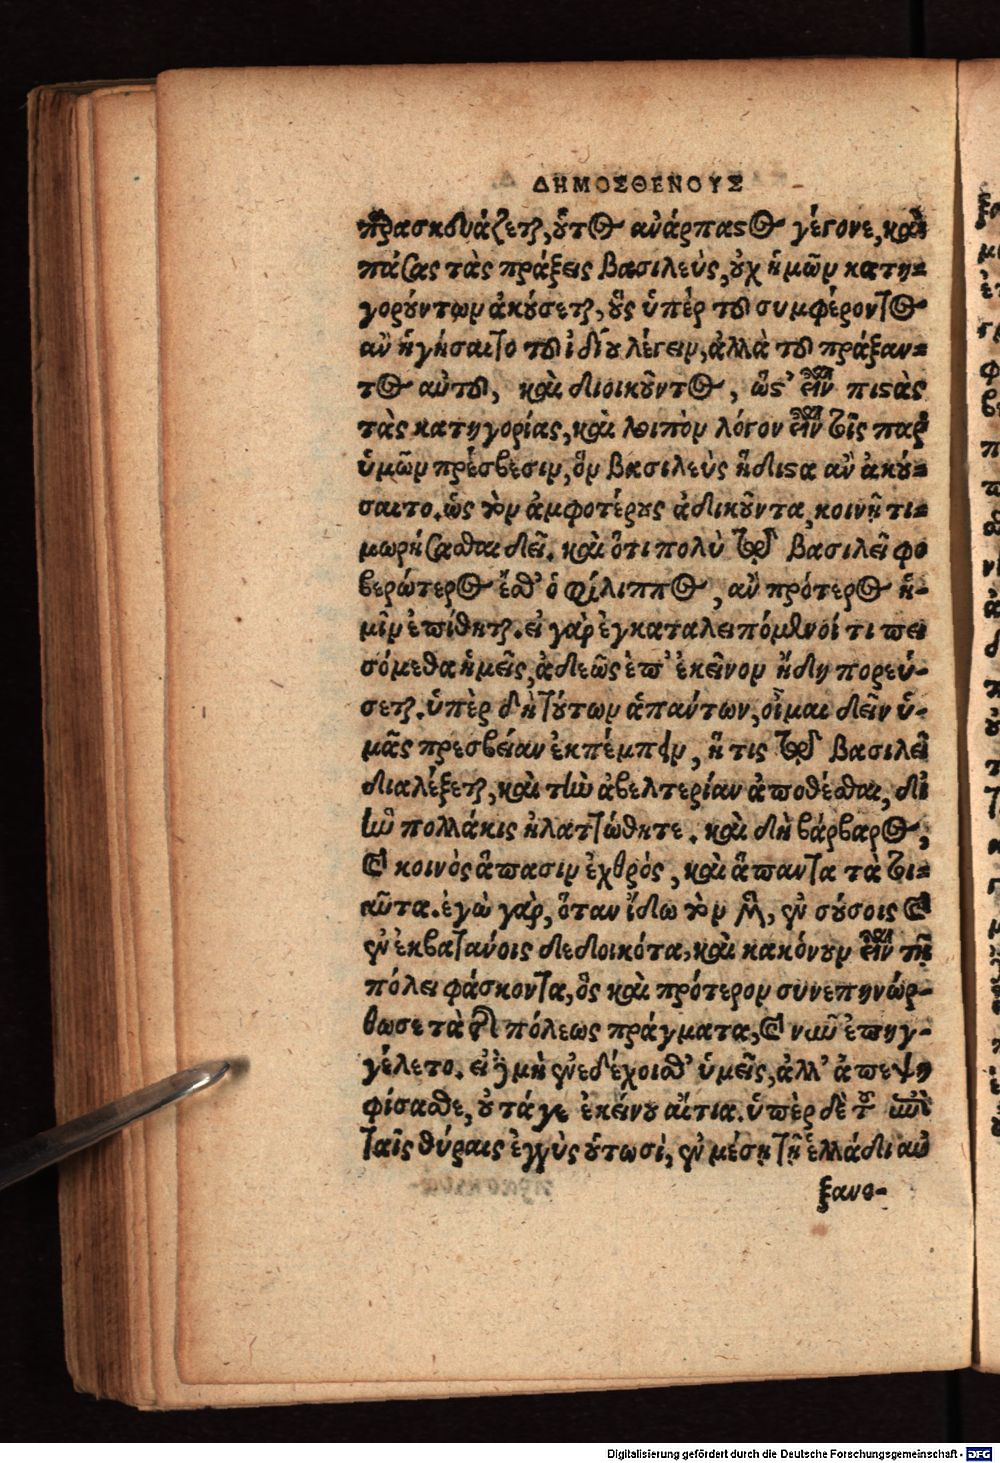 ΔΗΜΟΣΘΕΝΟΥΣ
παρασκευάζεται, οὗτος ἀνάρπαστος γέγονε, καὶ
πάσας τὰς πράξεις βασιλεὺς, οὐχ ἡμῶν κατη-
γορούντων ἀκούσεται, οὓς ὑπὲρ τοῦ συμφέροντος
ἂν ἡγήσαιτο τοῦ ἰδίου λέγειν, ἀλλὰ τοῦ πράξαν-
τος αὐτοῦ, καὶ διοικοῦντος, ὥστ' εἶναι πιστὰς
τὰς κατηγορίας, καὶ λοιπὸν λόγον εἶναι τοῖς παρ'
ὑμῶν πρέσβεσιν, ὃν βασιλεὺς ἥδιστα ἂν ἀκού-
σαιτο. ὡς τὸν ἀμφοτέρους ἀδικοῦντα, κοινῇ τι-
μωρήσασθαι δεῖ. καὶ ὅτι πολὺ τῷ βασιλεῖ φο
βερώτερος ἔσθ' ὁ φίλιππος, ἂν πρότερος ἡ-
μῖν ἐπίθηται. εἰ γὰρ ἐγκαταλειπόμενοί τι πει
σόμεθα ἡμεῖς, ἀδεῶς ἐπ' ἐκεῖνον ἤδη πορεύ-
σεται. ὑπὲρ δὴ τούτων ἁπάντων, οἶμαι δεῖν ὑ-
μᾶς πρεσβείαν ἐκπέμπειν, ἥ τις τῷ βασιλεῖ
διαλέξεται, καὶ τὴν ἀβελτερίαν ἀποθέσθαι, δι
ἣν πολλάκις ἠλαττώθητε. καὶ δὴ βάρβαρος,
καὶ κοινὸς ἅπασιν ἐχθρός, καὶ ἅπαντα τὰ τοι-
αῦτα. ἐγὼ γὰρ, ὅταν ἴδω τὸν μὲν, ἐν σούσοις καὶ
ἐν ἐκβατάνοις δεδοικότα, καὶ κακόνουν εἶναι τῇ
πόλει φάσκοντα, ὃς καὶ πρότερον συνεπηνώρ-
θωσε τὰ τῆς πόλεως πράγματα, καὶ νῦν ἐπηγ-
γέλετο. εἰ δὲ μὴ ἐνεδέχοισθ' ὑμεῖς, ἀλλ' ἀπεψη
φίσασθε, οὐ τάγε ἐκείνου αἴτια. ὑπὲρ δὲ τοῦ ἐπὶ
ταῖς θύραις ἐγγὺς οὑτωσί, ἐν μέσῃ τῇ ἑλλάδι αὐ
ξανο-
Digitalisierung gefördert durch die Deutsche Forschungsgemeinschaft - DFG